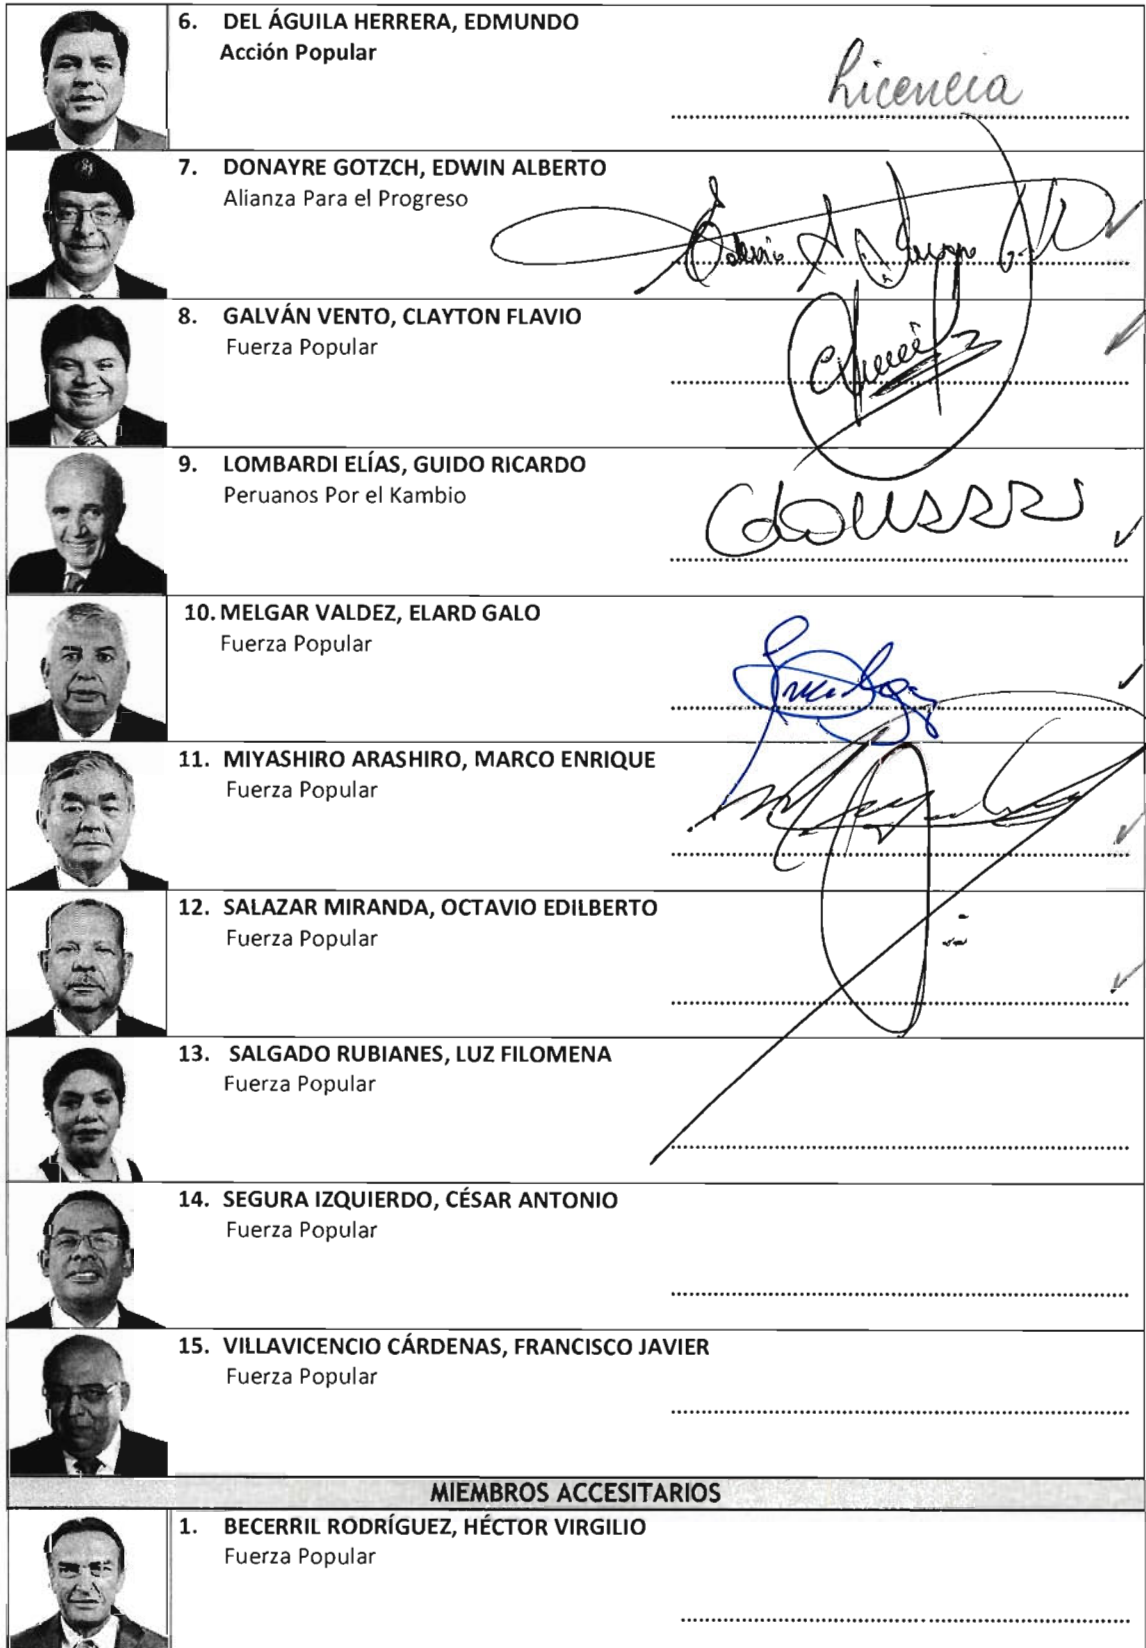 6. DEL ÁGUILA HERRERA, EDMUNDO
Acción Popular
Licencia
7. DONAYRE GOTZCH, EDWIN ALBERTO
Alianza Para el Progreso
8. GALVÁN VENTO, CLAYTON FLAVIO
Fuerza Popular
9. LOMBARDI ELÍAS, GUIDO RICARDO
Peruanos Por el Kambio
10. MELGAR VALDEZ, ELARD GALO
Fuerza Popular
11. MIYASHIRO ARASHIRO, MARCO ENRIQUE
Fuerza Popular
12. SALAZAR MIRANDA, OCTAVIO EDILBERTO
Fuerza Popular
13. SALGADO RUBIANES, LUZ FILOMENA
Fuerza Popular
14. SEGURA IZQUIERDO, CÉSAR ANTONIO
Fuerza Popular
15. VILLAVICENCIO CÁRDENAS, FRANCISCO JAVIER
Fuerza Popular
MIEMBROS ACCESITARIOS
1. BECERRIL RODRÍGUEZ, HÉCTOR VIRGILIO
Fuerza Popular